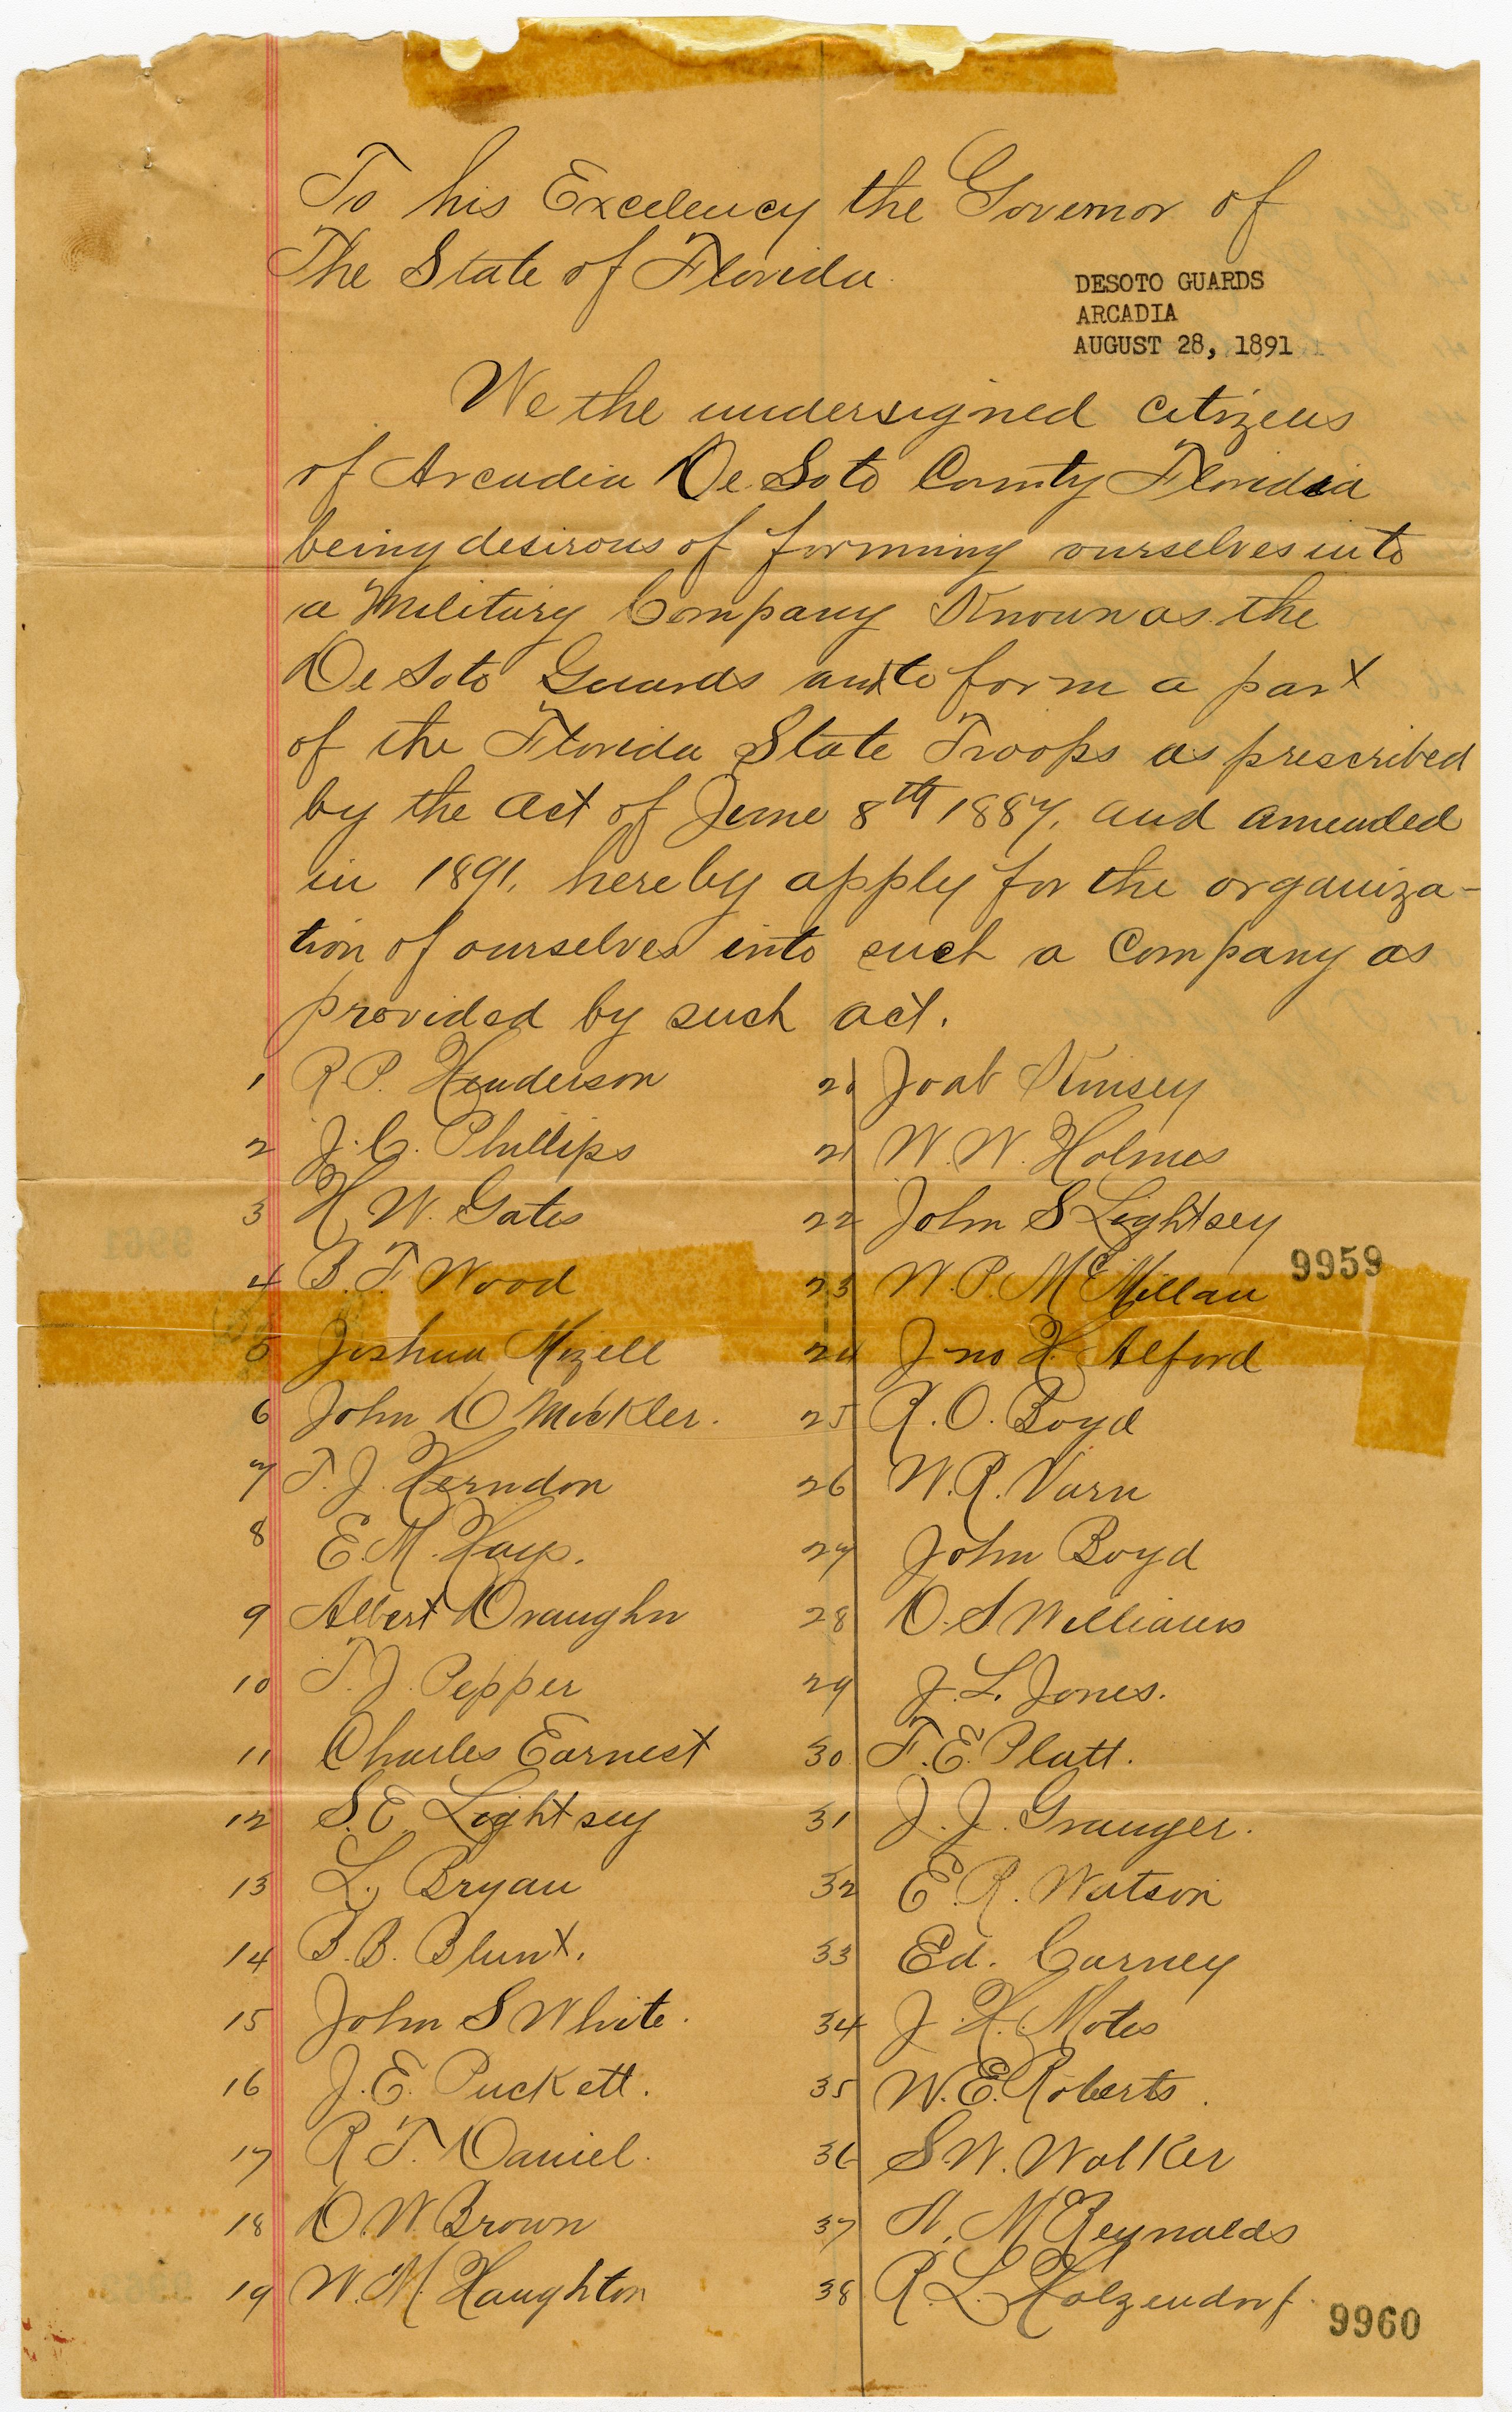 To his Excelency the Governor of
The State of Florida
DESOTO GUARDS
ARCADIA
AUGUST 28, 1891
We the undersigned citizens
of Arcadia De Soto County Florida
being desirous of forming ourselves into
a Military Company Known as the
De Soto Guards and to form a part
of the Florida State Troops as prescribed
by the act of June 8th 1887, and amended
in 1891, hereby apply for the organiza-
tion of ourselves into such a Company as
provided by such act.
1 R P. Henderson
2 J. C. Phillips
3 H W. Gates
4 B. F. Wood
5 Joshua Mizell
6 John D Mickler.
7 T. J. Herndon
8 E. M. Hays.
9 Albert Draughn
10 T. J. Pepper
11 Charles Earnest
12 S. E Lightsey
13 L. Bryan
14 B. B. Blunt.
15 John S White.
16 J. E. Puckett.
17 R T. Daniel.
18 D. W. Brown
19 W. M. Haughton
20 Joab Kinsey
21 W. W. Holmes
22 John S Lightsey
23 W. P. McMillan
9959
24 Jno H. Alford
25 R. O. Boyd
26 W. R. Varn
27 John Boyd
28 D. S Williams
29 J. L. Jones.
30 F. E. Platt.
31 J. J. Granger.
32 E. R. Watson
33 Ed. Carney
34 J. H. Motes
35 W. E. Roberts.
36 S. W. Walker
37 A. M Reynalds
38 R. L. Holzendorf.
9960